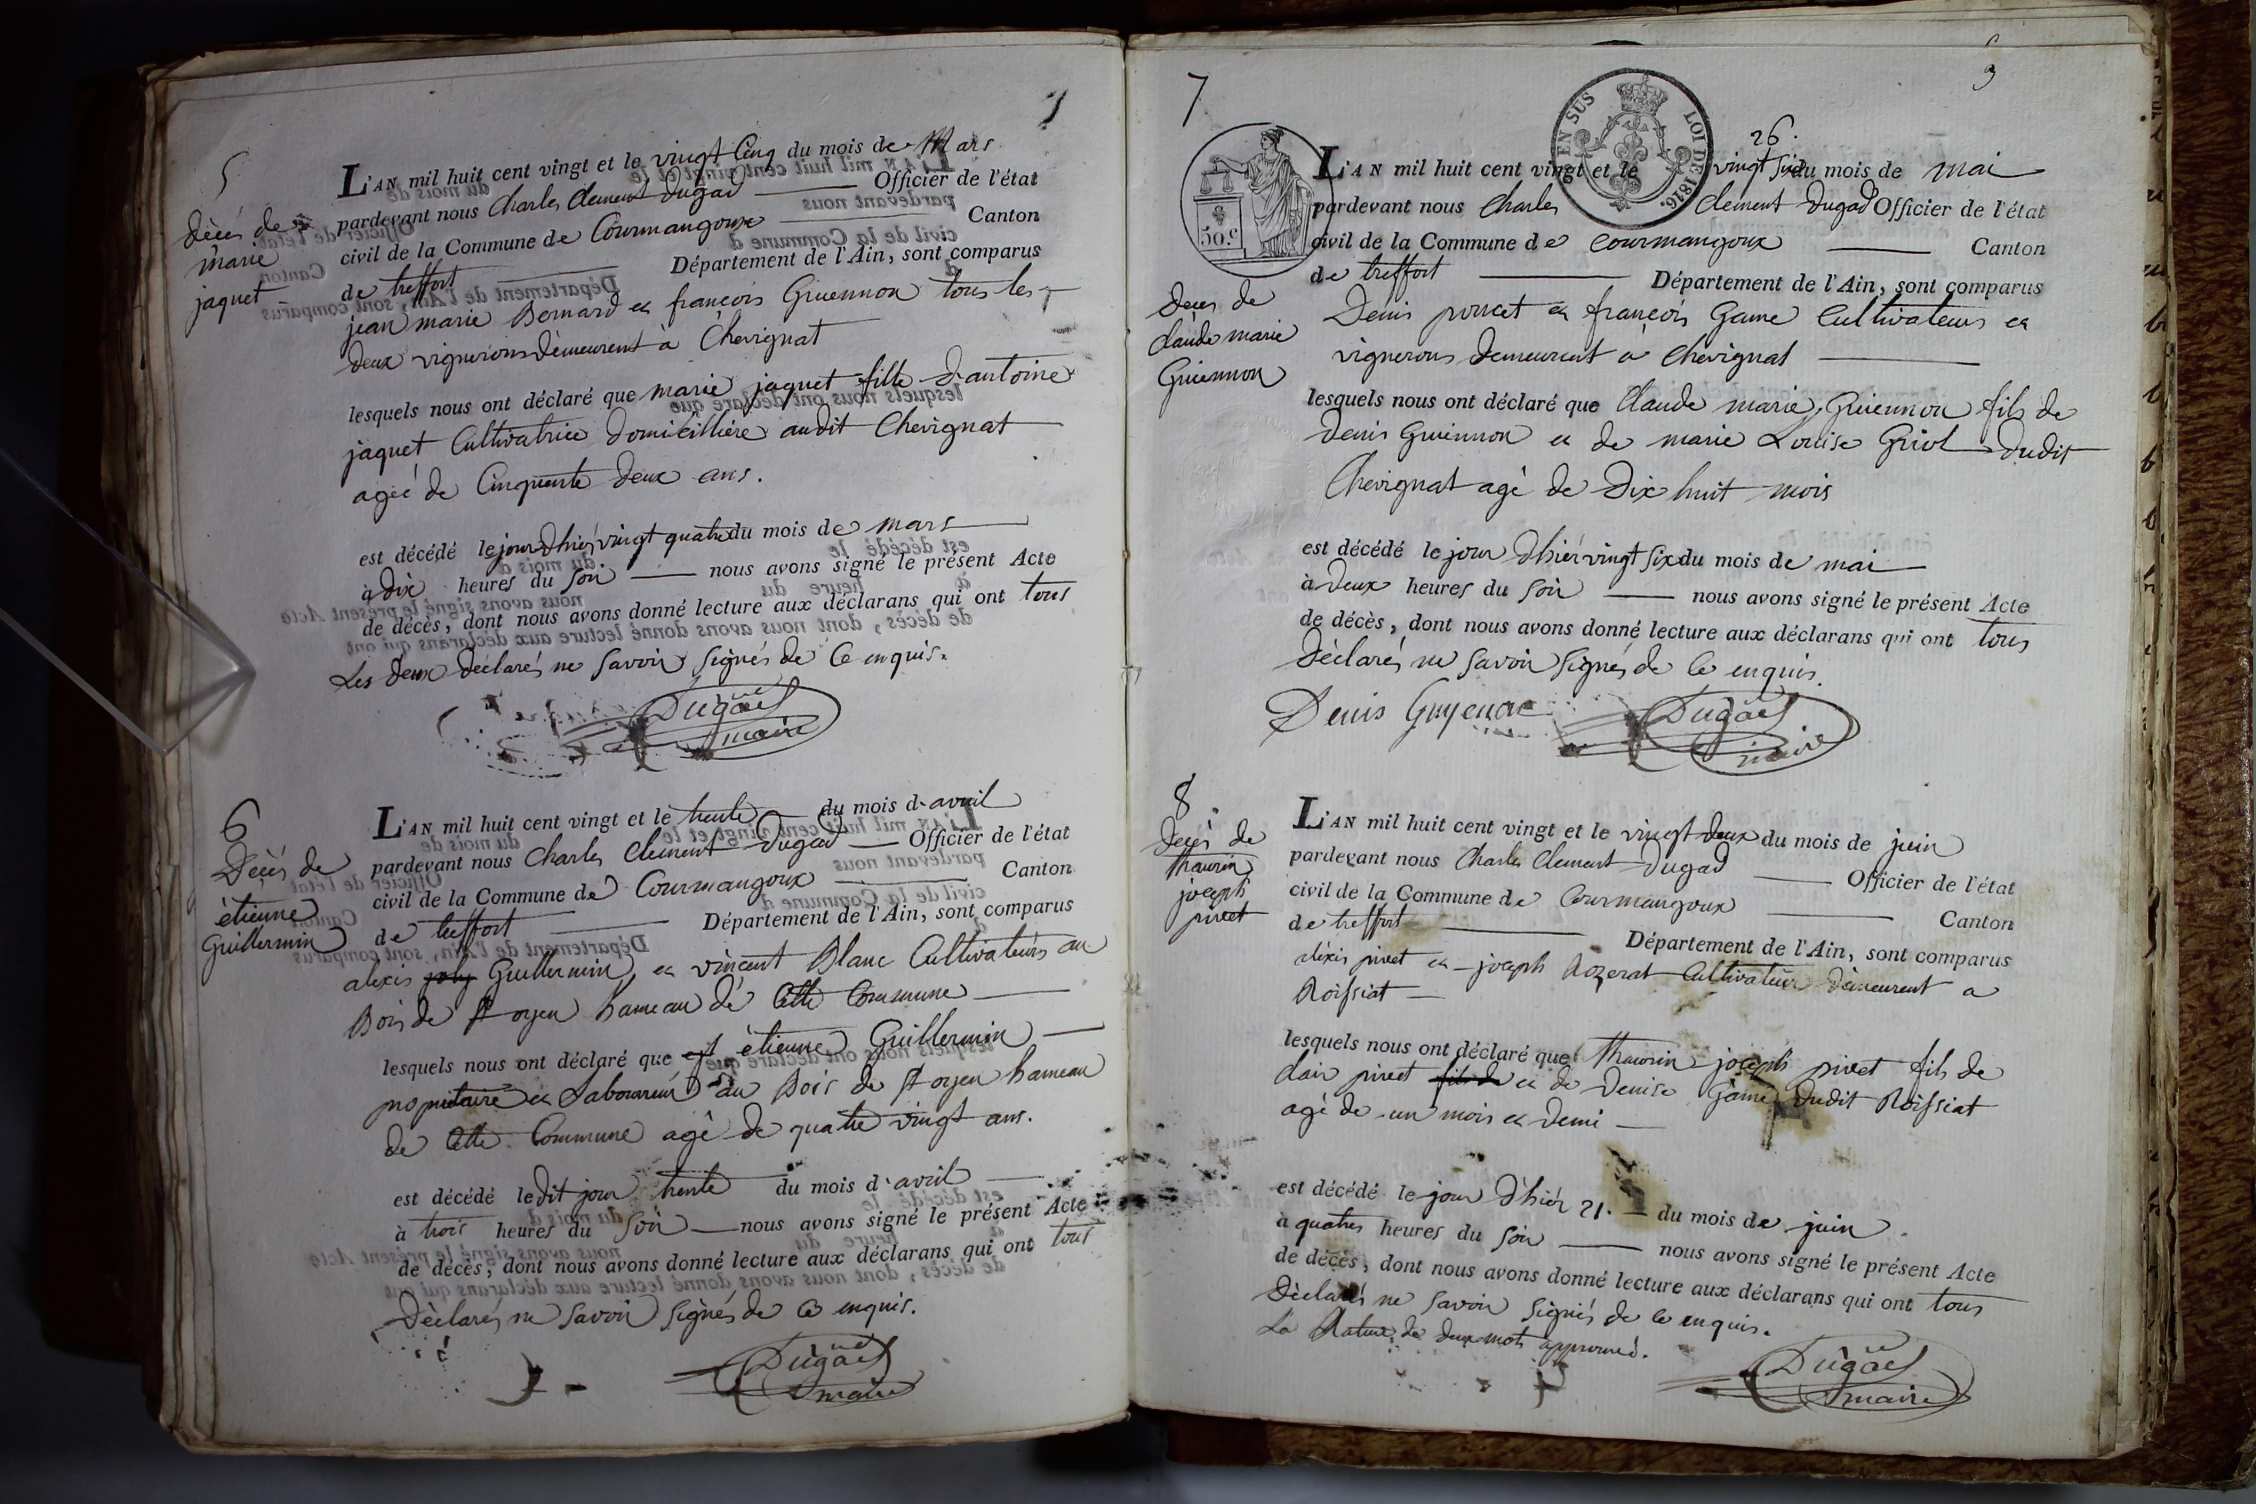 5
Décés de
marie
jaquet
L'AN mil huit cent vingt et le vingt Cinq du mois de Mars
pardevant nous Charles Clement Dugad Officier de l'état
civil de la Commune de Courmangoux Canton
de treffort Département de l'Ain, sont comparus
jean marie Bernard et françois Guiennon tous les
deux vignerons demeurent à Chevignat
lesquels nous ont déclaré que marie jaquet fille d'antoine
jaquet Cultivatrice domicilliére audit Chevignat
ageé de Cinquante deux ans.
est décédé le jour d'hiér vingt quatre du mois de mars
à dix heures du soir nous avons signé le présent Acte
de décès, dont nous avons donné lecture aux déclarans qui ont tous
Les deux déclarés ne savoir signés de ce enquis.
Dugad
maire
6
Décés de
étienne
Guillermin
L'AN mil huit cent vingt et le trente du mois d'avril
pardevant nous Charles Clement Dugad Officier de l'état
civil de la Commune de Courmangoux Canton
de treffort Département de l'Ain, sont comparus
alexis joly Guillermin et vincent Blanc Cultivateurs au
Bois de st oyen hameau de Cette Commune
lesquels nous ont déclaré que étienne Guillermin
propriétaire et Laboureur au Bois de st oyen hameau
de Cette Commune agé de quatre vingt ans.
est décédé ledit jour trente du mois d'avril
à trois heures du soir nous avons signé le présent Acte
de décès, dont nous avons donné lecture aux déclarans qui ont tous
Déclarés ne savoir signés de ce enquis.
Dugad
maire
7
50.c
EN SUS LOI DE 1816.
Deces de
claude marie
Guiennon
26.
L'AN mil huit cent vingt et le vingt six du mois de mai
pardevant nous Charles Clement Dugad Officier de l'état
civil de la Commune de Courmangoux Canton
de treffort Département de l'Ain, sont comparus
Denis poncet et françois Game Cultivateurs et
vignerons demeurent a Chevignat
lesquels nous ont déclaré que Claude marie Guiennon fils de
Denis Guiennon et de marie Louise Griot dudit
Chevignat agé de dix huit mois
est décédé le jour d'hiér vingt six du mois de mai
à deux heures du soir nous avons signé le présent Acte
de décès, dont nous avons donné lecture aux déclarans qui ont tous
Déclarés ne savoir signés de ce enquis.
Denis Guyenon
Dugad
maire
8
Decés de
thaurin
joseph
pivet
L'AN mil huit cent vingt et le vingt deux du mois de juin
pardevant nous Charles Clement Dugad Officier de l'état
civil de la Commune de Courmangoux Canton
de treffort Département de l'Ain, sont comparus
aléxis pivet et joseph Rozerat Cultivateur demeurent a
Roissiat
lesquels nous ont déclaré que thaurin joseph pivet fils de
clair pivet fils de et de Denise Game dudit Roissiat
agé de un mois et demi
est décédé le jour d'hiér 21. du mois de juin
à quatres heures du soir nous avons signé le présent Acte
de décès, dont nous avons donné lecture aux déclarans qui ont tous
Déclarés ne savoir signés de ce enquis.
La Rature de deux mots approuvé.
Dugad
maire